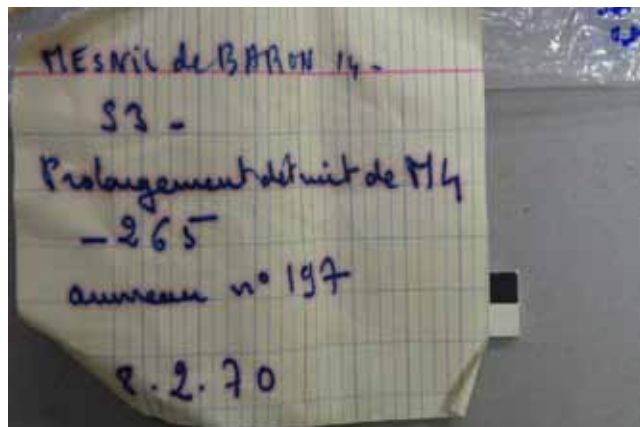 MESNIL de BARON 14 -
S3 -
Prolongement détruit de M4
- 265
anneau n° 197
8.2.70